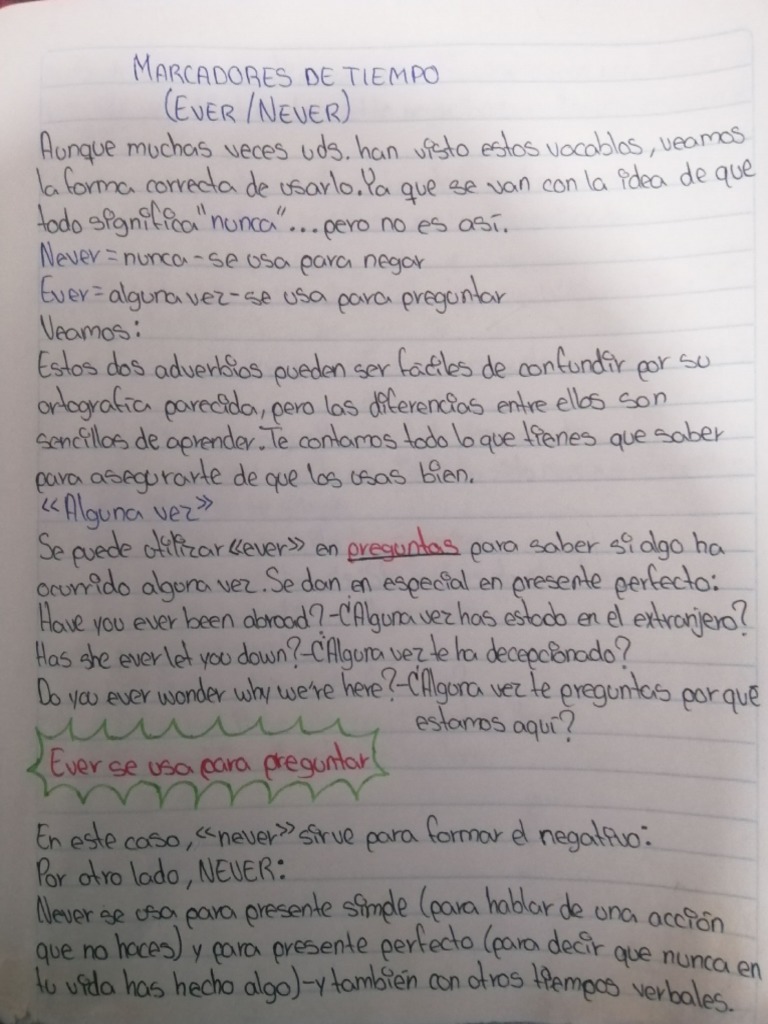 MARCADORES DE TIEMPO
(EVER/NEVER)
Aunque muchas veces uds. han visto estos vocablos, veamos
la forma correcta de usarlo. Ya que se van con la idea de que
todo significa "nunca"... pero no es así.
Never = nunca - se usa para negar
Ever = alguna vez - se usa para preguntar
Veamos:
Estos dos adverbios pueden ser fáciles de confundir por su
ortografía parecida, pero las diferencias entre ellos son
sencillas de aprender. Te contamos todo lo que tienes que saber
para asegurarte de que los usas bien.
«Alguna vez»
Se puede utilizar «ever» en preguntas para saber si algo ha
ocurrido alguna vez. Se dan en especial en presente perfecto:
Have you ever been abroad? - ¿Alguna vez has estado en el extranjero?
Has she ever let you down? - ¿Alguna vez te ha decepcionado?
Do you ever wonder why we're here? - ¿Alguna vez te preguntas por qué
estamos aquí?
Ever se usa para preguntar
En este caso, «never» sirve para formar el negativo:
Por otro lado, NEVER:
Never se usa para presente simple (para hablar de una acción
que no haces) y para presente perfecto (para decir que nunca en
tu vida has hecho algo) - y también con otros tiempos verbales.